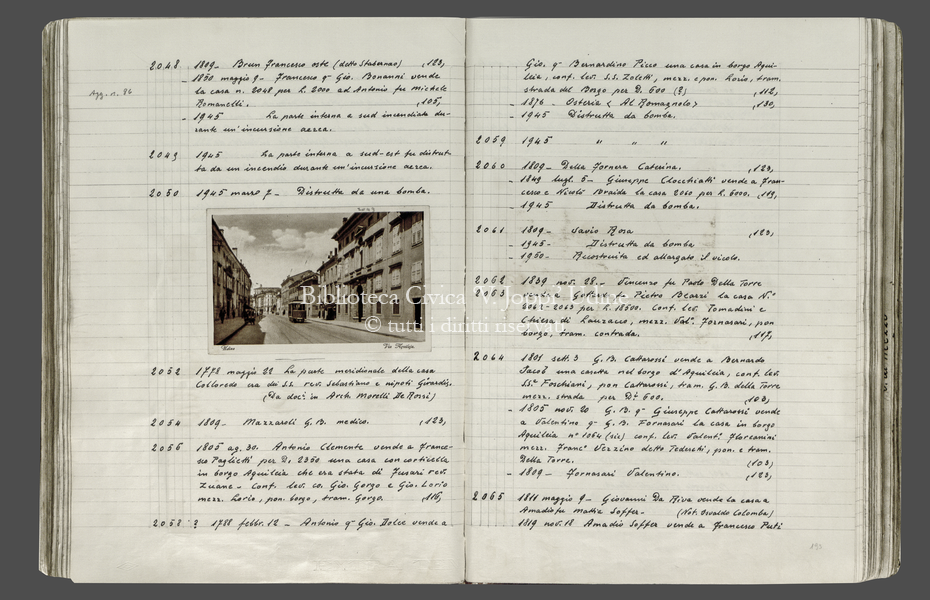 2048 1809 - Brun Francesco oste (detto Stabernao) ,123,
- 1850 maggio 9 - Francesco qm Gio. Bonanni vende
Agg. n. 86
la casa n. 2048 per L. 2000 ad Antonio fu Michele
Romanelli. ,105,
- 1945 La parte interna e sud incendiata du-
rante un'incursione aerea.
2049 1945 La parte interna a sud-est fu distrut-
ta da un incendio durante un'incursione aerea.
2050 1945 marzo 7 - Distrutta da una bomba.
Udine
Via Aquileja
2052 1778 maggio 22 La parte meridionale della casa
Colloredo era dei SS. rev. Sebastiano e nipoti Girardis.
(Da doc. in Arch. Morelli De Rossi)
2054 1809 - Mazzaroli G.B. medico. ,123,
2056 1805 ag. 30. Antonio Clemente vende a France-
sco Paglietti per D. 2350 una casa con corticella
in borgo Aquileia che era stata di Fusari rev.
Zuane - Conf. lev. co. Gio. Gorgo e Gio. Lorio
mezz. Lorio, pon. borgo, tram. Gorgo. ,116,
2058 ? 1788 febbr. 12 - Antonio qm Gio. Dolce vende a
Gio. qm Bernardino Picco una casa in borgo Aqui-
leia, conf. lev. S.S. Zoletti, mezz. e pon. Lorio, tram.
strada del Borgo per D. 600 (?) ,112,
- 1876 - Osteria < Al Romagnolo > ,130,
- 1945 Distrutta da bomba.
2059 1945 " " "
2060 1809 - Della Fornera Caterina. ,123,
- 1849 lugl. 5 - Giuseppe Clocchiatti vende a Fran-
cesco e Nicolò Braida la casa 2060 per L. 6000. ,113,
- 1945 Distrutta da bomba.
2061 1809 - Savio Rosa ,123,
- 1945 - Distrutta da bomba
- 1950 - Ricostruita ed allargato il vicolo.
2062 1839 nov. 28. - Vincenzo fu Paolo Della Torre
2063 Pietro Bearzi la casa N.i
2062-2063 per L. 18500. Conf. lev. Tomadini e
Chiesa di Lauzacco, mezz. Val. Fornasari, pon
borgo, tram. contrada. ,117,
2064 1801 sett. 3 G.B. Cattarossi vende a Bernardo
Jacob una casetta nel borgo d'Aquileia, conf. lev.
SS.i Foschiani, pon Cattarossi, tram. G.B. della Torre
mezz. strada per D.ti 600. (103)
- 1805 nov. 20 G.B. qm Giuseppe Cattarossi vende
a Valentino qm G.B. Fornasari la casa in borgo
Aquileia n° 1064 (sic) conf. lev. Valent. Floreanini
mezz. Franc. Vezzino detto Tedeschi, pon. e tram.
Della Torre. (103)
- 1809 - Fornasari Valentino. (123)
2065 1811 maggio 9 - Giovanni Da Riva vende la casa a
Amadio fu Mattia Soffer - (Not. Osvaldo Colomba)
1819 nov. 18 Amadio Soffer vende a Francesco
Biblioteca Civica "V. Joppi" Udine
© tutti i diritti riservati